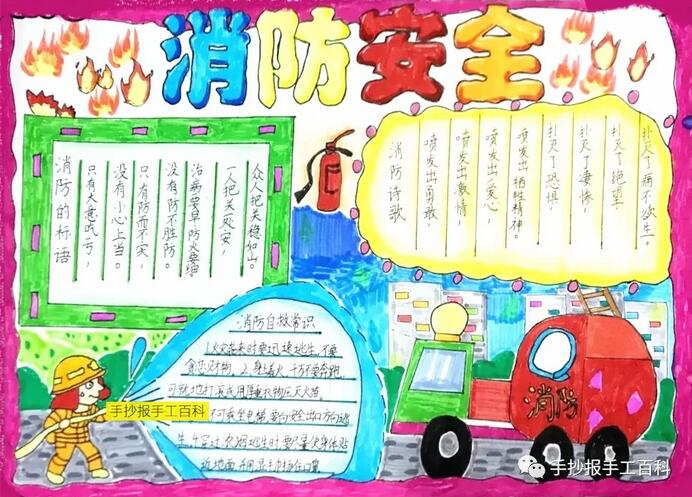 消防安全
消防的标语
只有大意吃亏,
没有小心上当。
只有防而不实,
没有防不胜防。
治病要早,防火要细。
一人把关一处安,
众人把关稳如山。
消防诗歌
喷发出勇敢,
喷发出激情,
喷发出爱心,
喷发出牺牲精神。
扑灭了恐惧,
扑灭了凄惨,
扑灭了绝望,
扑灭了痛不欲生。
消防自救常识
1.火灾袭来时要迅速逃生,不要
贪恋财物。2.身上着火,千万不要奔跑
可就地打滚或用厚重衣物压灭火苗。
不可乘坐电梯,要向安全出口方向逃
生,4.穿过浓烟逃生时要尽量使身体贴
近地面,并用湿毛巾捂住口鼻
手抄报手工百科
消防
手抄报手工百科